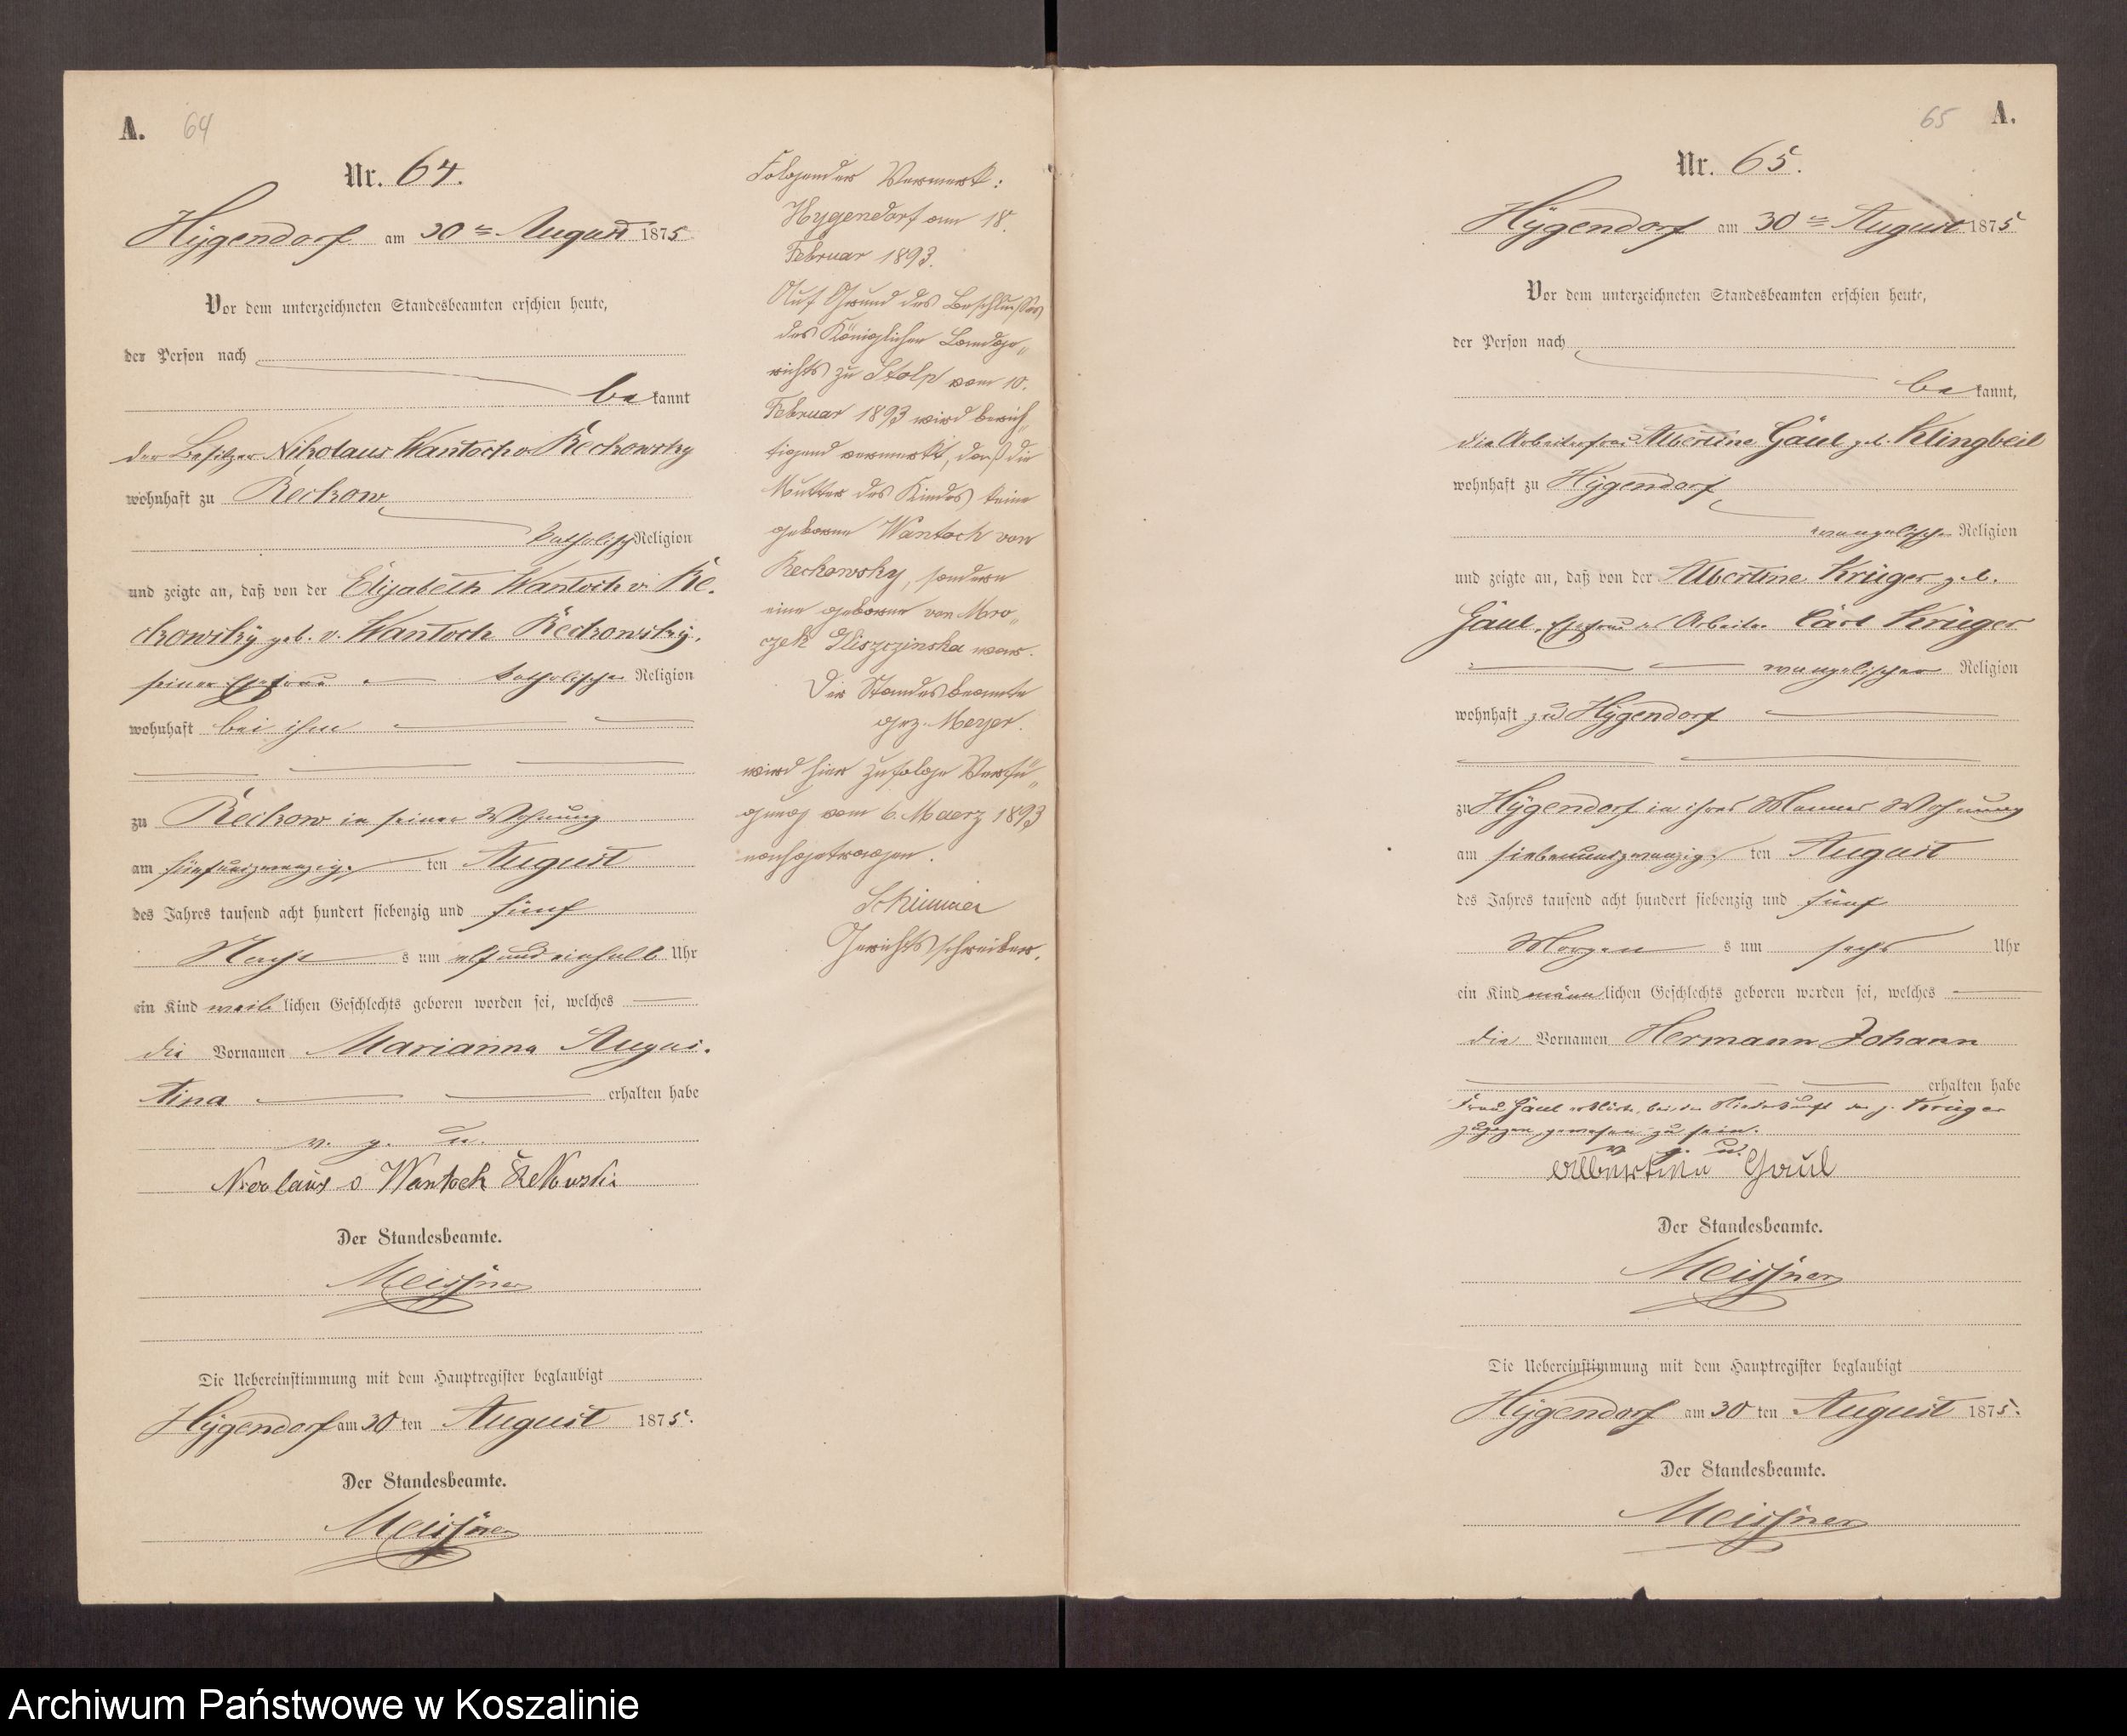 A. 64
Nr. 64.
Hygendorf am 30ten August 1875
Vor dem unterzeichneten Standesbeamten erschien heute,
der Person nach
bekannt
der Besitzer Nikolaus Wantoch v Reckowsky
wohnhaft zu Reckow
katholisch Religion
und zeigte an, daß von der Elisabeth Wantoch v. Re-
ckowsky geb. v. Wantoch Reckowsky,
seiner Ehefrau katholischer Religion
wohnhaft bei ihm
zu Reckow in seiner Wohnung
am fünfundzwanzig ten August
des Jahres tausend acht hundert siebenzig und fünf
Nacht s um elf und einhalb Uhr
ein Kind weib lichen Geschlechts geboren worden sei, welches
die Vornamen Marianna Augus-
tina erhalten habe
v. g. u.
Nicolaus v Wantoch
Der Standesbeamte.
Meissner
Die Uebereinstimmung mit dem Hauptregister beglaubigt
Hygendorf am 30 ten August 1875.
Der Standesbeamte.
Meissner
Folgender Vermerk:
Hygendorf am 18.
Februar 1893.
Auf Grund des Beschlusses
des Königlichen Landge-
richts zu Stolp vom 10.
Februar 1893 wird berich-
tigend vermerkt, daß die
Mutter des Kindes keine
geborene Wantoch von
Reckowsky, sondern
eine geborene von Mro-
czek Gliszczinska war.
Der Standesbeamte
gez. Meyer.
wird hier zufolge Verfü-
gung vom 6. Maerz 1893
nachgetragen.
Schimmer
Gerichtsschreiber.
65 A.
Nr. 65.
Hygendorf am 30ten August 1875
Vor dem unterzeichneten Standesbeamten erschien heute,
der Person nach
bekannt,
die Arbeiterfrau Albertine Gaul geb. Klingbeil
wohnhaft zu Hygendorf
evangelischer Religion
und zeigte an, daß von der Albertine Krüger geb.
Gaul, Ehefrau des Arbeiter Carl Krüger
evangelischer Religion
wohnhaft zu Hygendorf
zu Hygendorf in ihres Mannes Wohnung
am siebenundzwanzig ten August
des Jahres tausend acht hundert siebenzig und fünf
Morgen s um sechs Uhr
ein Kind männ lichen Geschlechts geboren worden sei, welches
die Vornamen Hermann Johann
erhalten habe
Frau Gaul erklärte, bei der Niederkunft der p. Krüger
zugegen gewesen zu sein.
v. g. u.
Albertine Gaul
Der Standesbeamte.
Meissner
Die Uebereinstimmung mit dem Hauptregister beglaubigt
Hygendorf am 30 ten August 1875.
Der Standesbeamte.
Meissner
Archiwum Państwowe w Koszalinie